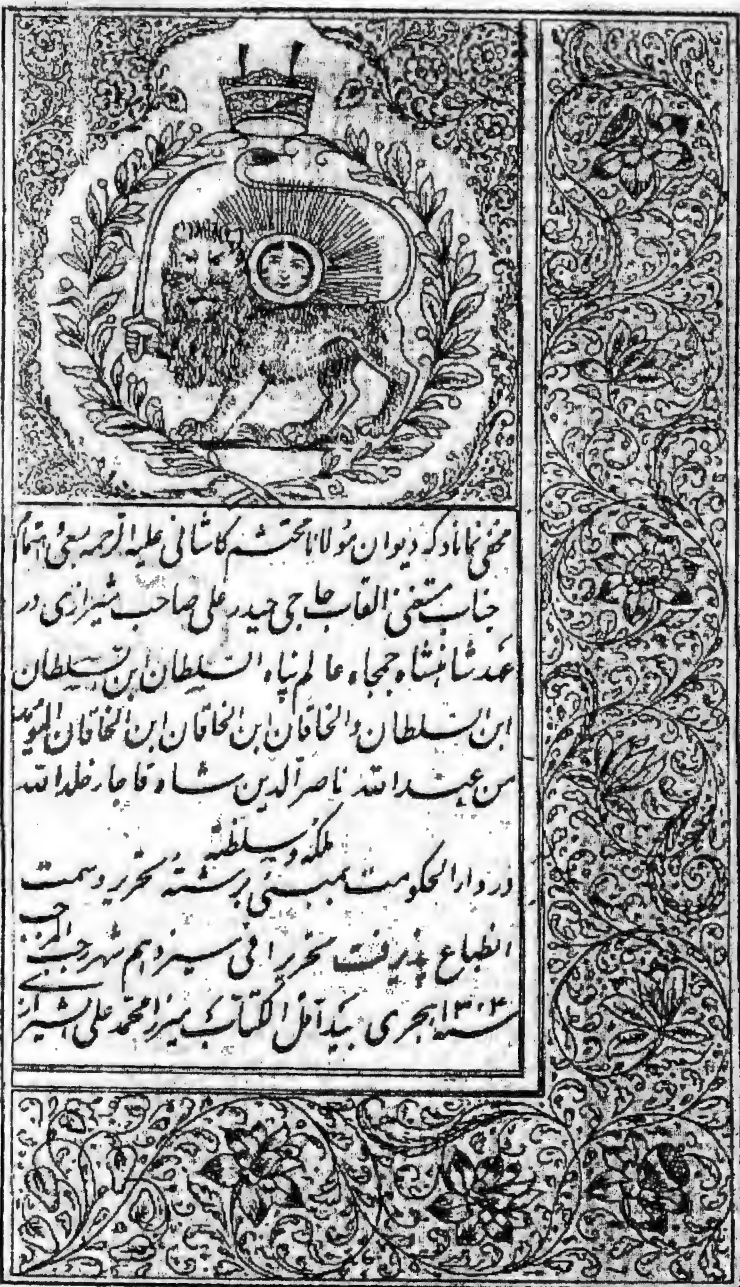 مخفی نماناد که دیوان مولانا محتشم کاشانی علیه الرحمه بسعی و اهتمام
جناب مستغنی القاب حاجی حیدر علی صاحب شیرازی در
عهد شاهنشاه جمجاه عالم پناه السلطان ابن السلطان
ابن السلطان و الخاقان ابن الخاقان ابن الخاقان المؤید
من عند الله ناصر الدین شاه قاجار خلد الله
ملکه و سلطنة
در دار الحکومت بمبئی برشتهٔ تحریر و سمت
انطباع پذیرفت تحریرا فی سیزدهم شهر رجب المرجب
سنه ۱۳۰۴ هجری بید اقل الکتاب میرزا محمد علی الشیرازی